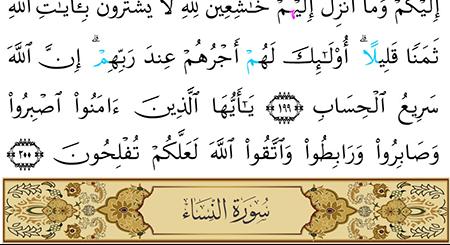 إِلَيْكُمْ وَمَا أُنزِلَ إِلَيْهِمْ خَٰشِعِينَ لِلَّهِ لَا يَشْتَرُونَ بِـَٔايَٰتِ ٱللَّهِ
ثَمَنًا قَلِيلًا ۗ أُو۟لَٰٓئِكَ لَهُمْ أَجْرُهُمْ عِندَ رَبِّهِمْ ۗ إِنَّ ٱللَّهَ
سَرِيعُ ٱلْحِسَابِ ١٩٩ يَٰٓأَيُّهَا ٱلَّذِينَ ءَامَنُوا۟ ٱصْبِرُوا۟
وَصَابِرُوا۟ وَرَابِطُوا۟ وَٱتَّقُوا۟ ٱللَّهَ لَعَلَّكُمْ تُفْلِحُونَ ٢٠٠
سُورَةُ النِّسَاءِ